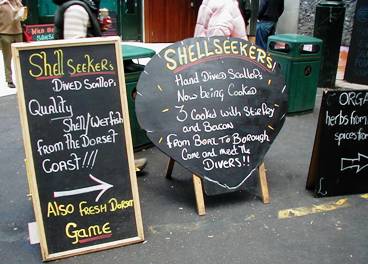 Shell Seekers
Dived Scallops
Quality
Shell/Wetfish
from the Dorset
Coast!!!
Also Fresh Dorset
Game
SHELLSEEKERS!!
Hand Dived Scallops
Now being Cooked
3 Cooked with Stirfrey
and Bacon
From Boat to Borough
Come and meet the
Divers!!
WILD
GAME
ORGA
herbs from
spices from